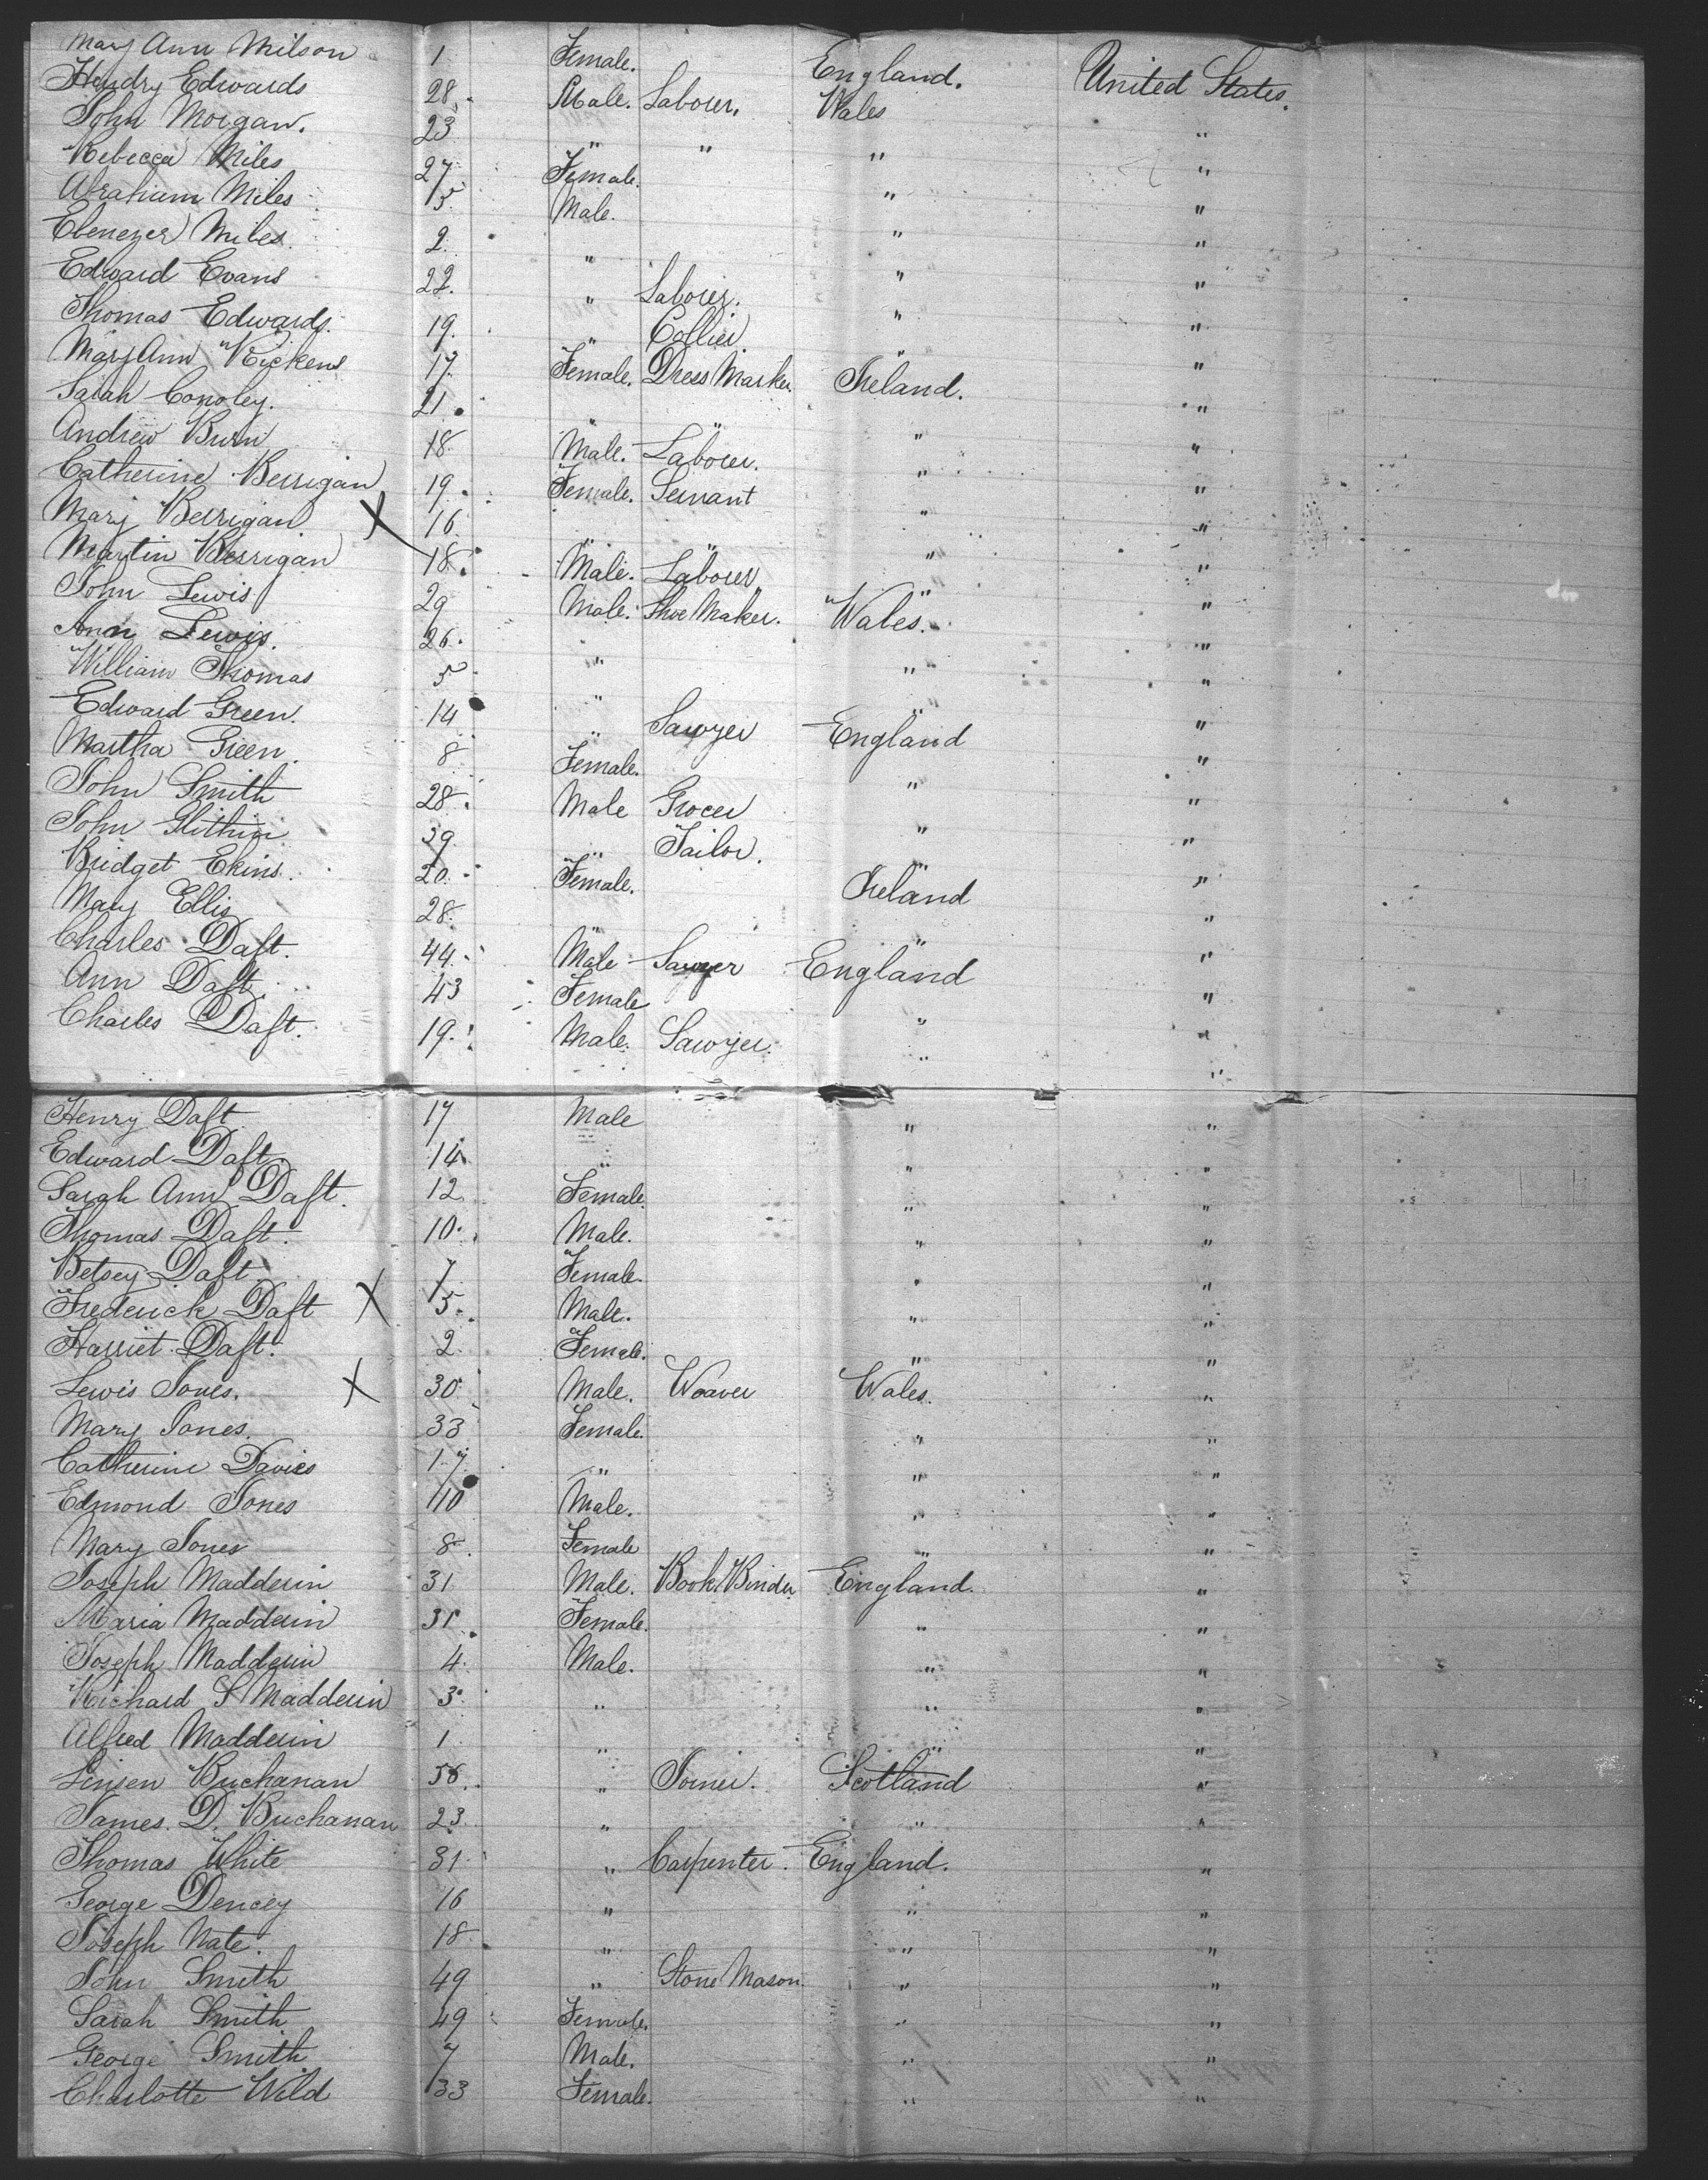 Mary Ann Milson 1 Female. England. United States.
Hendry Edwards 28. Male. Laborer. Wales "
John Morgan. 23 " " " "
Rebecca Miles 27 Female. " "
Abraham Miles 5 Male. " "
Ebenezer Miles. 2. " " "
Edward Evans 22. " Laborer. " "
Thomas Edwards. 19. " Collier " "
Mary Ann Rickens 17. Female. Dress Marker. Ireland. "
Sarah Conoley. 21. " " " "
Andrew Burn 18. Male. Laborer. " "
Catherine Berrigan 19. Female. Servant " "
Mary Berrigan X 16 " " " "
Martin Berrigan 18. Male. Laborer " "
John Lewis 29 Male. Shoe Maker. Wales. "
Ann Lewis. 26. " " "
William Thomas 5 " " "
Edward Green. 14 " Sawyer England "
Martha Green. 8 Female. " "
John Smith 28. Male Grocer " "
John 39. " Tailor. " "
Bridget Ekins. 20. Female. Ireland "
Mary Ellis 28. " " "
Charles Daft. 44. Male Sawyer England "
Ann Daft 43 Female " "
Charles Daft. 19. Male. Sawyer. " "
Henry Daft 17 Male " "
Edward Daft. 14. " " "
Sarah Ann Daft. 12 Female. " "
Thomas Daft. 10. Male. " "
Betsey Daft 7 Female. " "
Frederick Daft X 5. Male. " "
Harriet Daft. 2 Female. " "
Lewis Jones. X 30 Male. Weaver Wales. "
Mary Jones. 33 Female. " "
Catherine Davies 17. " " "
Edmond Jones 10 Male. " "
Mary Jones 8. Female " "
Joseph Madderin 31 Male. Book Binder England. "
Maria Madderin 31. Female. " "
Joseph Madderin 4. Male. " "
Richard S Madderin 3. " " "
Alfred Madderin 1 " " "
Buchanan 56. " Joiner. Scotland "
James. D. Buchanan 23 " " "
Thomas White 31 " Carpenter. England. "
George Dencey 16 " " "
Joseph Nate. 18. " " "
John Smith 49 " Stone Mason " "
Sarah Smith 49 Female. " "
George Smith 7 Male. " "
Charlotte Wild 33 Female. " "